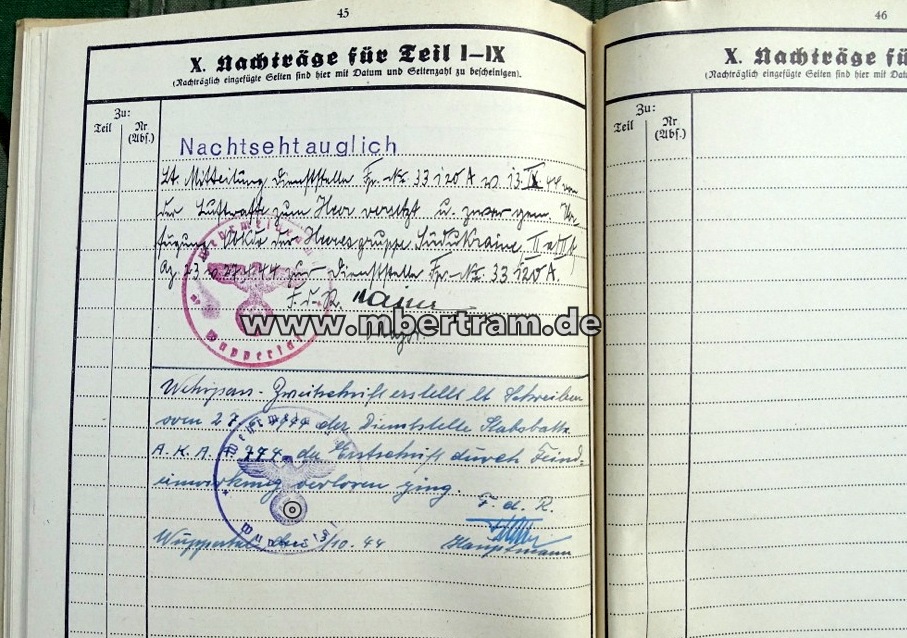 45
X. Nachträge für Teil I–IX
(Nachträglich eingefügte Seiten sind hier mit Datum und Seitenzahl zu bescheinigen).
Zu:
Teil
Nr
(Abs.)
Nachtsehtauglich
Lt. Mitteilung Dienststelle Fp.-Nr. 33 120 A v. 13. IX 44 von
der Luftwaffe zum Heer versetzt u. zwar gem. Ver-
fügung der Heeresgruppe Südukraine, II
Az. 23 v. 27. 44 zur Dienststelle Fp.-Nr. 33 120 A.
F. d. R.
Major
Wuppertal
www.mbertram.de
Wehrpass-Zweitschrift erstellt lt. Schreiben
vom 27. der Dienststelle Stabsbattr.
A. K. A. 774. da Erstschrift durch Feind-
einwirkung verloren ging.
F. d. R.
Wuppertal den 3/10. 44
Hauptmann
46
X. Nachträge fü
(Nachträglich eingefügte Seiten sind hier mit Dat
Zu:
Teil
Nr
(Abs.)